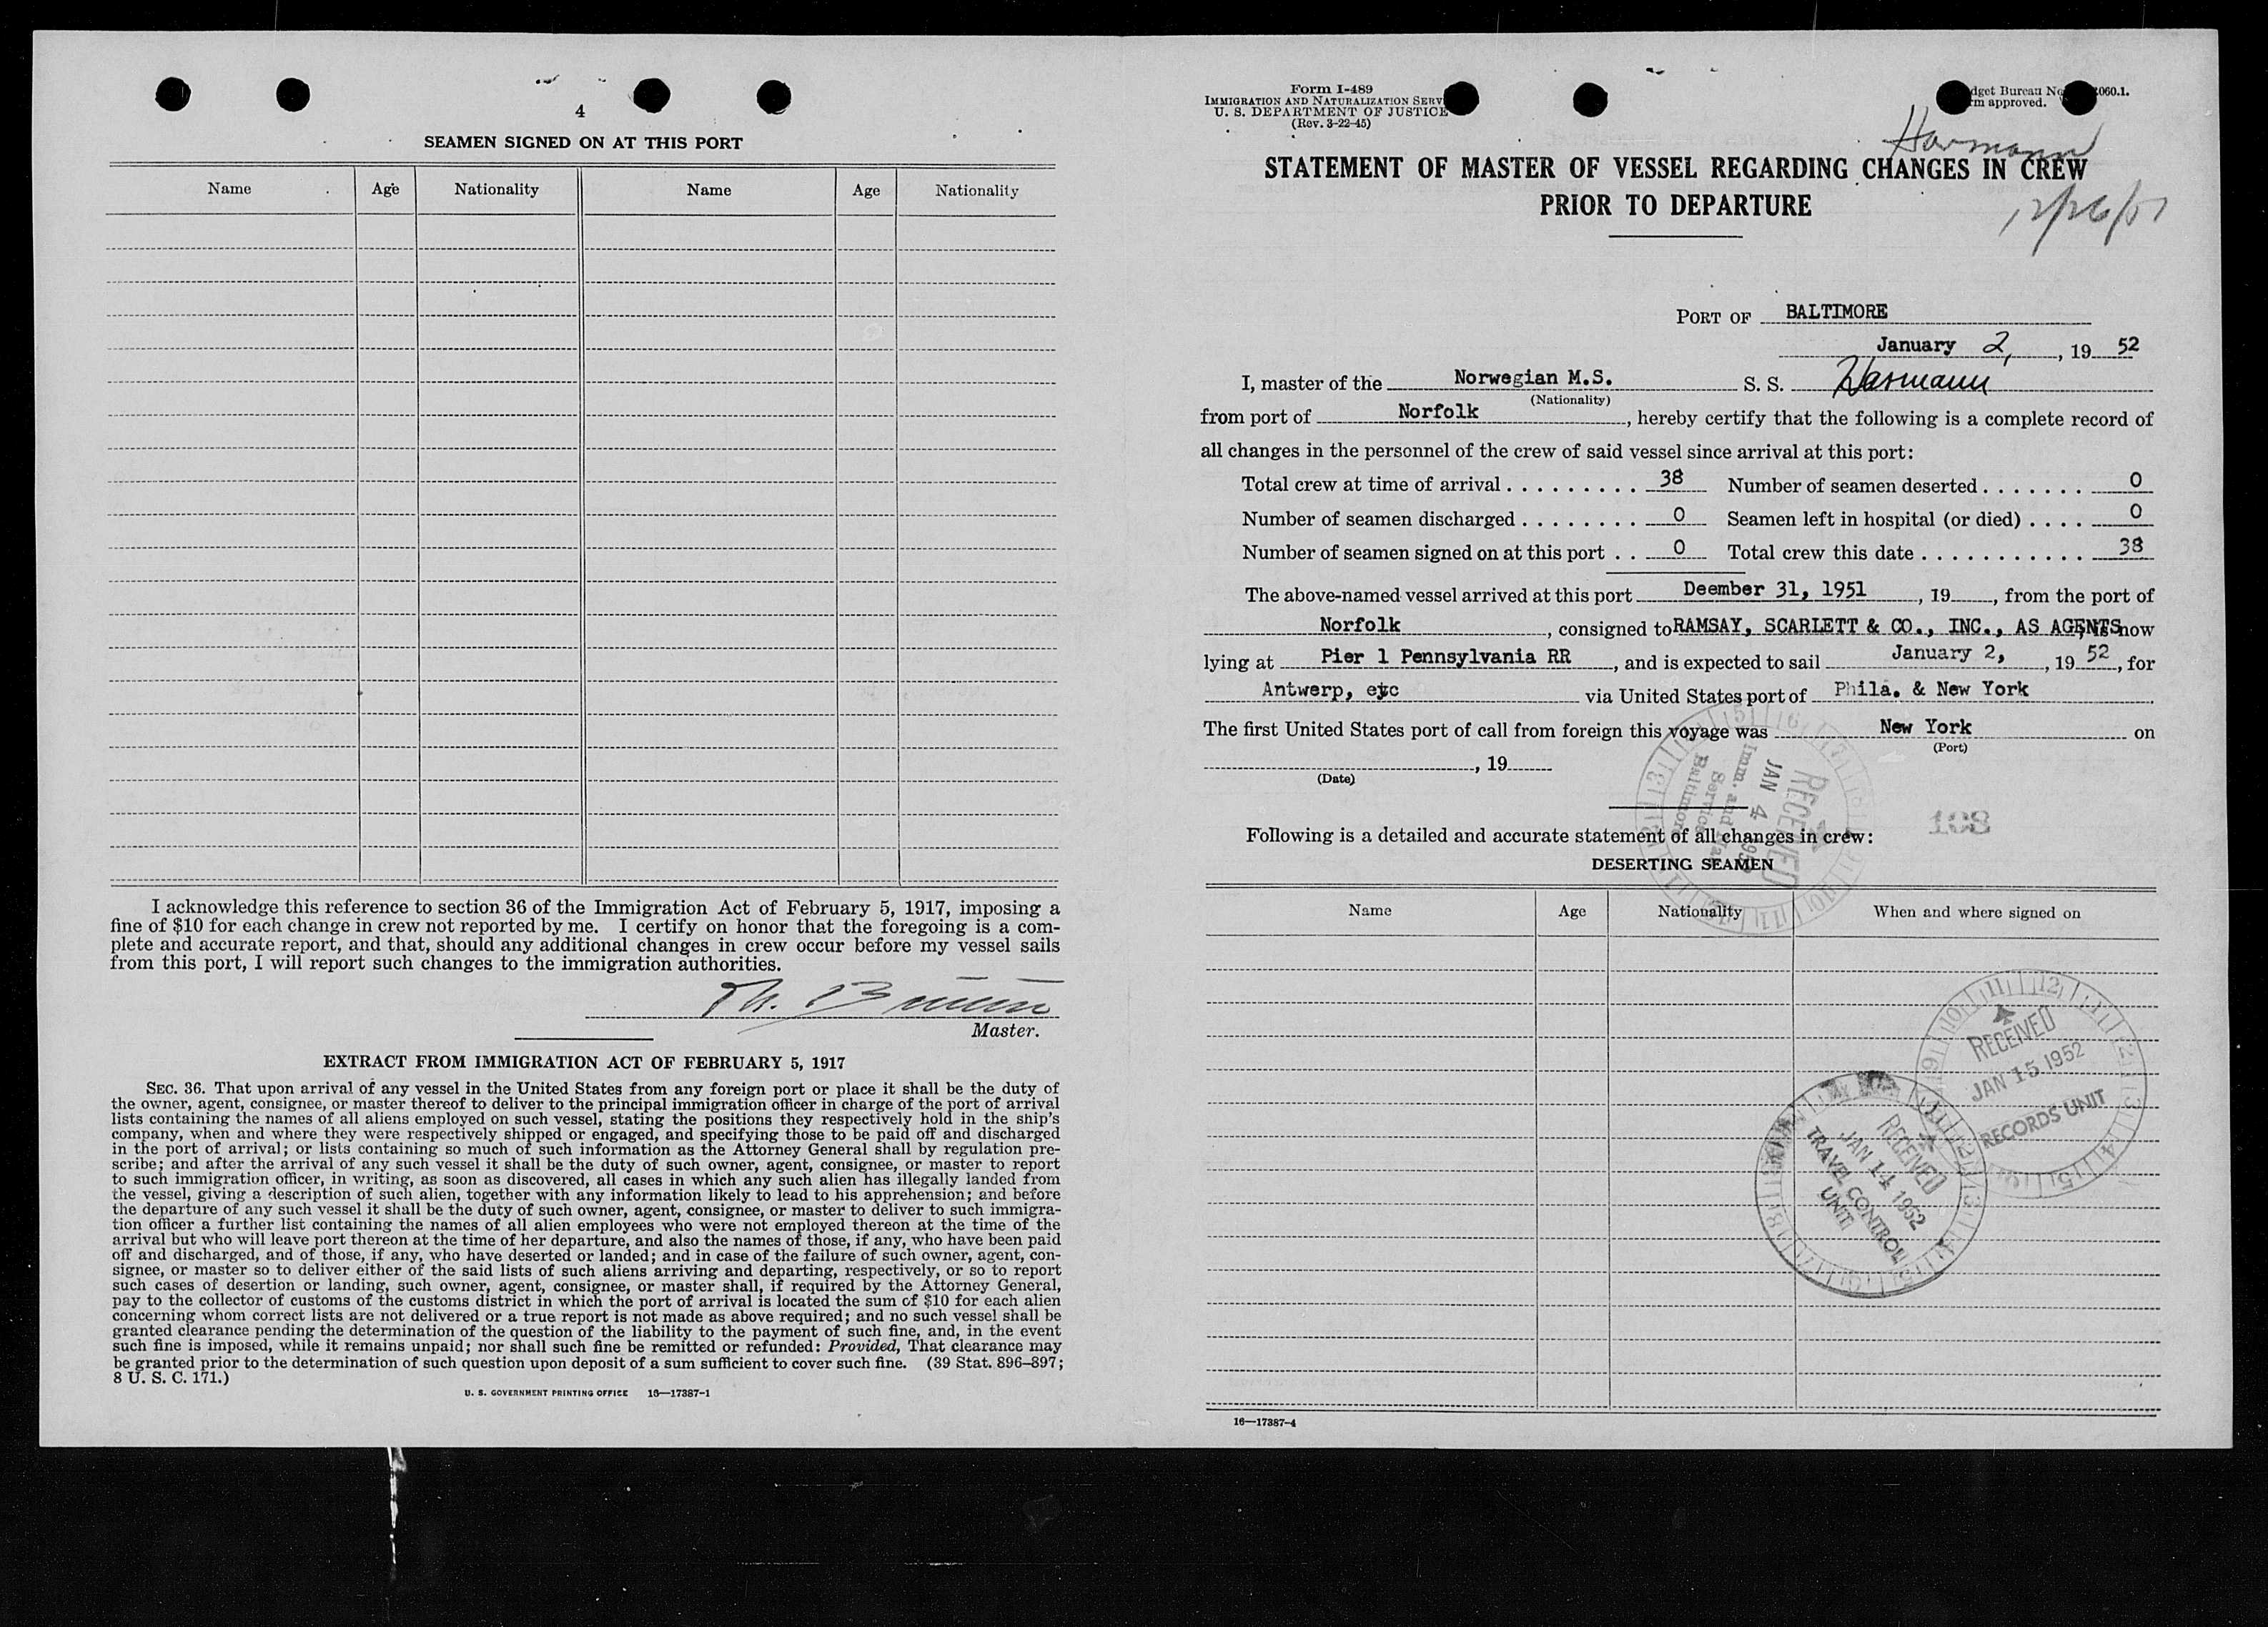 4
SEAMEN SIGNED ON AT THIS PORT
Name Age Nationality Name Age Nationality
I acknowledge this reference to section 36 of the Immigration Act of February 5, 1917, imposing a
fine of $10 for each change in crew not reported by me. I certify on honor that the foregoing is a com-
plete and accurate report, and that, should any additional changes in crew occur before my vessel sails
from this port, I will report such changes to the immigration authorities.
Master.
EXTRACT FROM IMMIGRATION ACT OF FEBRUARY 5, 1917
SEC. 36. That upon arrival of any vessel in the United States from any foreign port or place it shall be the duty of
the owner, agent, consignee, or master thereof to deliver to the principal immigration officer in charge of the port of arrival
lists containing the names of all aliens employed on such vessel, stating the positions they respectively hold in the ship's
company, when and where they were respectively shipped or engaged, and specifying those to be paid off and discharged
in the port of arrival; or lists containing so much of such information as the Attorney General shall by regulation pre-
scribe; and after the arrival of any such vessel it shall be the duty of such owner, agent, consignee, or master to report
to such immigration officer, in writing, as soon as discovered, all cases in which any such alien has illegally landed from
the vessel, giving a description of such alien, together with any information likely to lead to his apprehension; and before
the departure of any such vessel it shall be the duty of such owner, agent, consignee, or master to deliver to such immigra-
tion officer a further list containing the names of all alien employees who were not employed thereon at the time of the
arrival but who will leave port thereon at the time of her departure, and also the names of those, if any, who have been paid
off and discharged, and of those, if any, who have deserted or landed; and in case of the failure of such owner, agent, con-
signee, or master so to deliver either of the said lists of such aliens arriving and departing, respectively, or so to report
such cases of desertion or landing, such owner, agent, consignee, or master shall, if required by the Attorney General,
pay to the collector of customs of the customs district in which the port of arrival is located the sum of $10 for each alien
concerning whom correct lists are not delivered or a true report is not made as above required; and no such vessel shall be
granted clearance pending the determination of the question of the liability to the payment of such fine, and, in the event
such fine is imposed, while it remains unpaid; nor shall such fine be remitted or refunded: Provided, That clearance may
be granted prior to the determination of such question upon deposit of a sum sufficient to cover such fine. (39 Stat. 896–897;
8 U. S. C. 171.)
U. S. GOVERNMENT PRINTING OFFICE 16—17387-1
Form I-489
IMMIGRATION AND NATURALIZATION SERV
U. S. DEPARTMENT OF JUSTICE
(Rev. 3-22-45)
dget Bureau No 060.1.
rm approved.
Harmann
12/26/51
STATEMENT OF MASTER OF VESSEL REGARDING CHANGES IN CREW
PRIOR TO DEPARTURE
PORT OF BALTIMORE
January 2, , 19 52
I, master of the Norwegian M.S. S. S. Harmann
(Nationality)
from port of Norfolk, hereby certify that the following is a complete record of
all changes in the personnel of the crew of said vessel since arrival at this port:
Total crew at time of arrival . . . . . . . . . . 38 Number of seamen deserted . . . . . . . 0
Number of seamen discharged . . . . . . . . 0 Seamen left in hospital (or died) . . . . 0
Number of seamen signed on at this port . . 0 Total crew this date . . . . . . . . . . . . 38
The above-named vessel arrived at this port Deember 31, 1951, 19, from the port of
Norfolk, consigned to RAMSAY, SCARLETT & CO., INC., AS AGENTS now
lying at Pier 1 Pennsylvania RR, and is expected to sail January 2, , 19 52, for
Antwerp, etc via United States port of Phila. & New York
The first United States port of call from foreign this voyage was New York on
(Port)
, 19
(Date)
RECEIVED
JAN 4
Imm. and
Service
Baltimore
108
Following is a detailed and accurate statement of all changes in crew:
DESERTING SEAMEN
Name Age Nationality When and where signed on
RECEIVED
JAN 15 1952
RECORDS UNIT
RECEIVED
JAN 14 1952
TRAVEL CONTROL
UNIT
16—17387-4